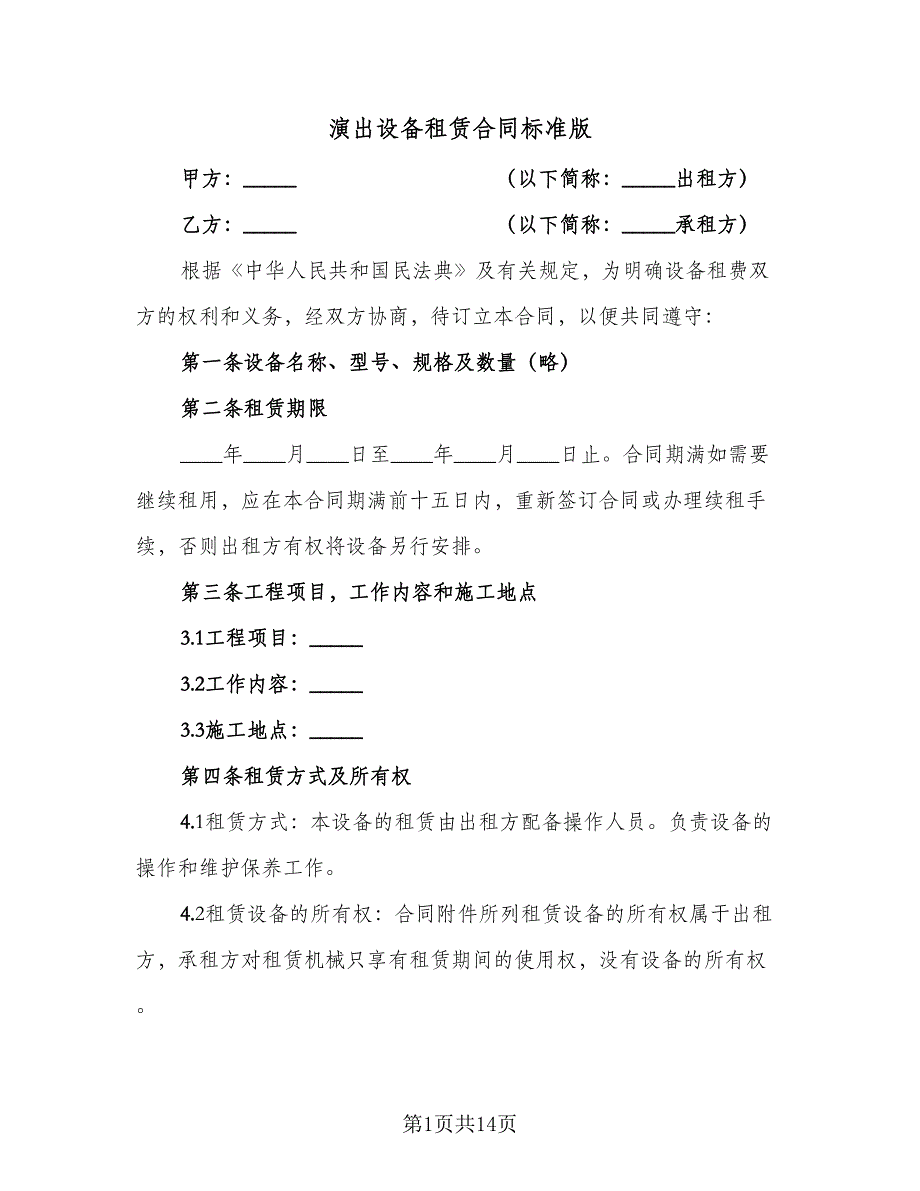 演出设备租赁合同标准版
甲方：_____ （以下简称：_____出租方）
乙方：_____ （以下简称：_____承租方）
根据《中华人民共和国民法典》及有关规定，为明确设备租费双
方的权利和义务，经双方协商，待订立本合同，以便共同遵守：
第一条设备名称、型号、规格及数量（略）
第二条租赁期限
____年____月____日至____年____月____日止。合同期满如需要
继续租用，应在本合同期满前十五日内，重新签订合同或办理续租手
续，否则出租方有权将设备另行安排。
第三条工程项目，工作内容和施工地点
3.1工程项目：_____
3.2工作内容：_____
3.3施工地点：_____
第四条租赁方式及所有权
4.1租赁方式：本设备的租赁由出租方配备操作人员。负责设备的
操作和维护保养工作。
4.2租赁设备的所有权：合同附件所列租赁设备的所有权属于出租
方，承租方对租赁机械只享有租赁期间的使用权，没有设备的所有权
。
第1页共14页